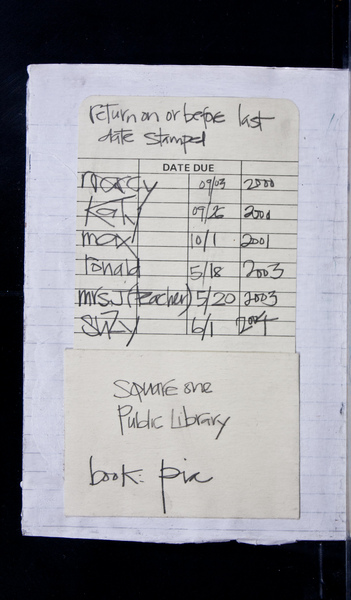 return on or before last
date stamped
DATE DUE
Marcy 09/03 2000
Katy 09/26 2001
max 10/1 2001
ronald 5/18 2003
mrs.J (teacher) 5/20 2003
suzy 6/1 2004
Square one
Public Library
book: pix